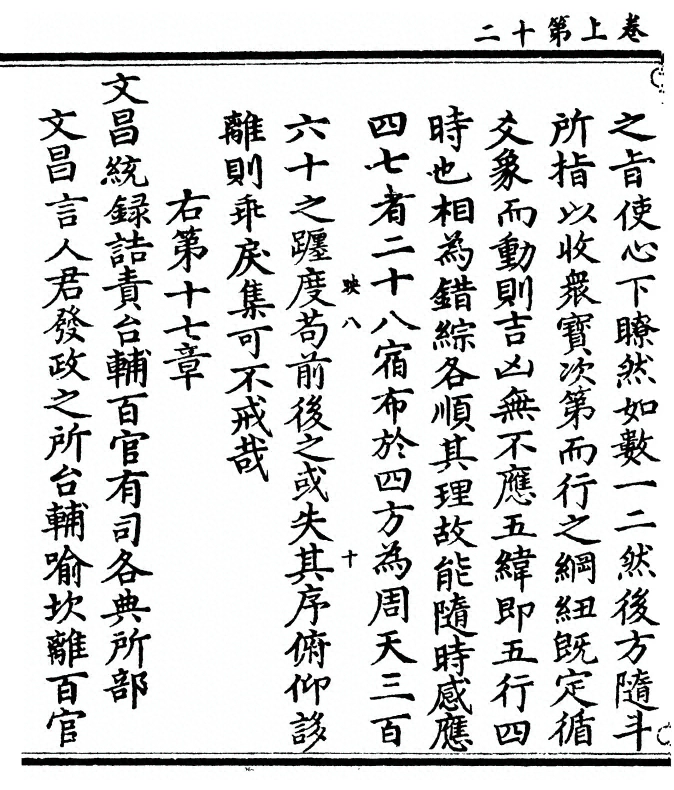 卷上第十二
之㫖使心下瞭然如數一二然後方隨斗
所指以收衆寶次第而行之綱紐既定循
爻象而動則吉凶無不應五緯即五行四
時也相為錯綜各順其理故能隨時感應
四七者二十八宿布於四方為周天三百
映八 十
六十之躔度苟前後之或失其序俯仰詃
離則乖戾集可不戒哉
右第十七章
文昌統録詰責台輔百官有司各典所部
文昌言人君發政之所台輔喻坎離百官